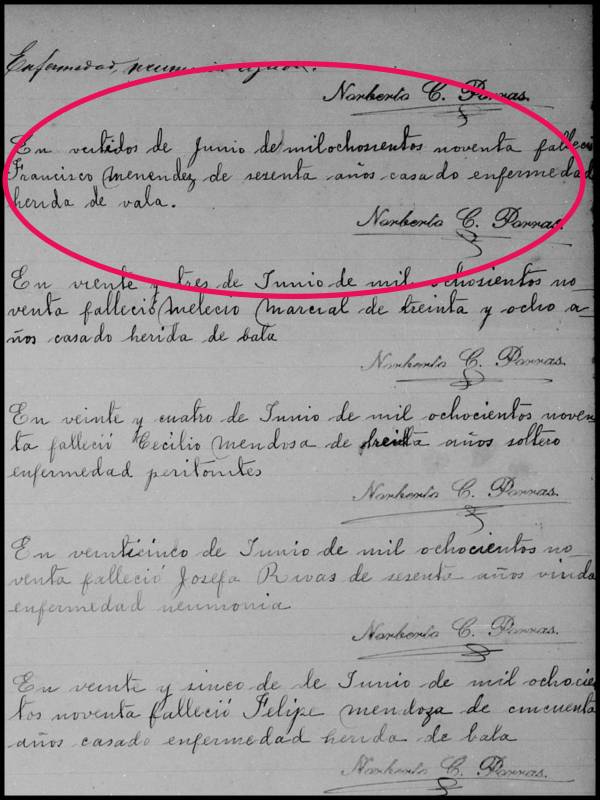 Enfermedad, neumonia aguda.
Norberto C. Parras.
En veitidos de Junio de milochosientos noventa falleció
Francisco Menendez de sesenta años casado enfermedad
herida de vala.
Norberto C. Parras.
En viente y tres de Junio de mil ochosientos no-
venta falleció Melecio Marcial de treinta y ocho a-
ños casado herida de bala
Norberto C. Parras.
En veinte y cuatro de Junio de mil ochocientos noven-
ta falleció Cecilio Mendosa de treinta años soltero
enfermedad peritonites
Norberto C. Parras.
En veinticinco de Junio de mil ochocientos no-
venta falleció Josefa Rivas de sesenta años viuda
enfermedad neumonia
Norberto C. Parras.
En veinte y sinco de le Junio de mil ochocien
tos noventa falleció Felipe Mendoza de cincuenta
años casado enfermedad herida de bala
Norberto C. Parras.